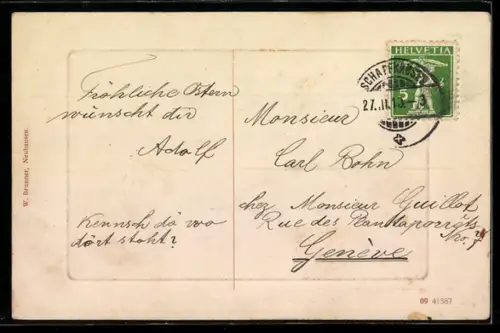 HELVETIA
5
SCHAFFHAUSEN
27.III.13
Fröhliche Ostern
wünscht dir
Adolf
Kennsch dä wo
dört stoht?
Monsieur
Carl Bohn
chez Monsieur Guillot
Rue des
No. 7
Genève
W. Brunner, Neuhausen.
09 41567